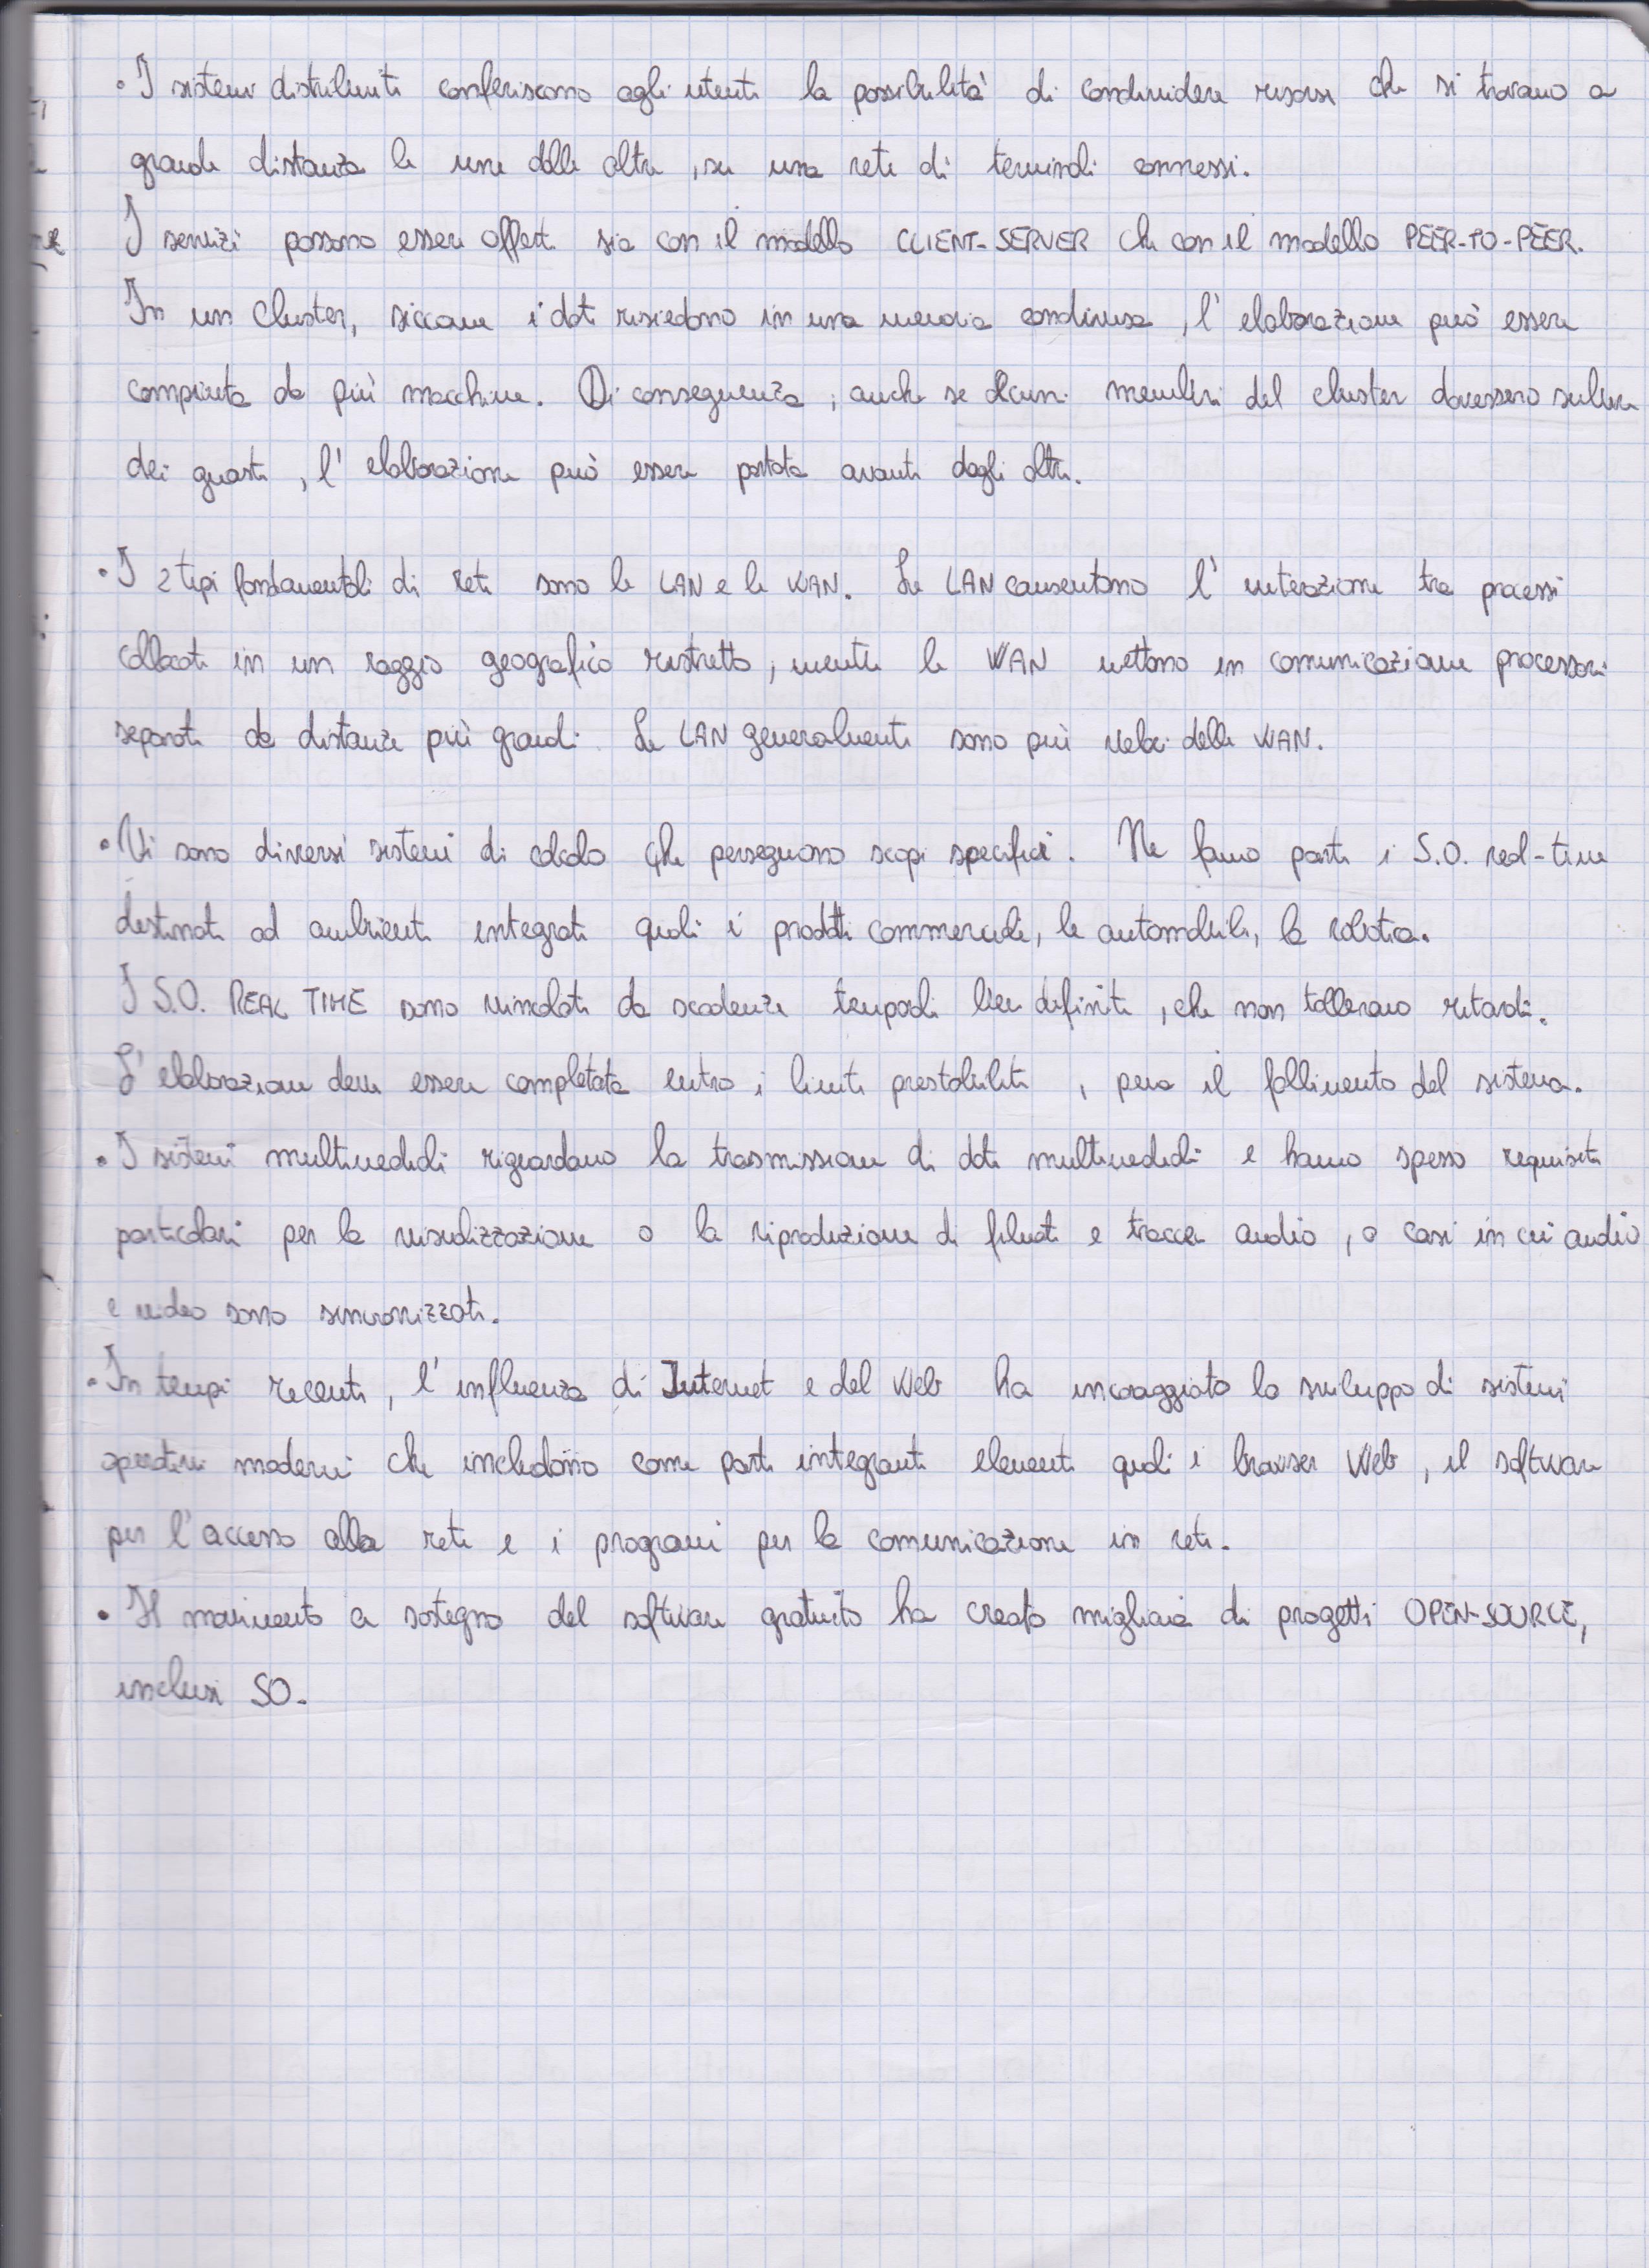 • I sistemi distribuiti conferiscono agli utenti la possibilità di condividere risorse che si trovano a
grande distanza le une dalle altre, su una rete di terminali connessi.
I servizi possono essere offerti sia con il modello CLIENT-SERVER che con il modello PEER-TO-PEER.
In un cluster, siccome i dati risiedono in una memoria condivisa, l'elaborazione può essere
compiuta da più macchine. Di conseguenza, anche se alcuni membri del cluster dovessero subire
dei guasti, l'elaborazione può essere portata avanti dagli altri.
• I 2 tipi fondamentali di reti sono le LAN e le WAN. Le LAN consentono l'interazione tra processi
collocati in un raggio geografico ristretto, mentre le WAN mettono in comunicazione processori
separati da distanze più grandi. Le LAN generalmente sono più veloci delle WAN.
• Vi sono diversi sistemi di calcolo che perseguono scopi specifici. Ne fanno parte i S.O. real-time
destinati ad ambienti integrati quali i prodotti commerciali, le automobili, la robotica.
I S.O. REAL TIME sono vincolati da scadenze temporali ben definite, che non tollerano ritardi.
L'elaborazione deve essere completata entro i limiti prestabiliti, pena il fallimento del sistema.
• I sistemi multimediali riguardano la trasmissione di dati multimediali e hanno spesso requisiti
particolari per la visualizzazione o la riproduzione di filmati e tracce audio, o casi in cui audio
e video sono sincronizzati.
• In tempi recenti, l'influenza di Internet e del Web ha incoraggiato lo sviluppo di sistemi
operativi moderni che includono come parti integranti elementi quali i browser Web, il software
per l'accesso alla rete e i programmi per la comunicazione in rete.
• Il movimento a sostegno del software gratuito ha creato migliaia di progetti OPEN-SOURCE,
inclusi SO.